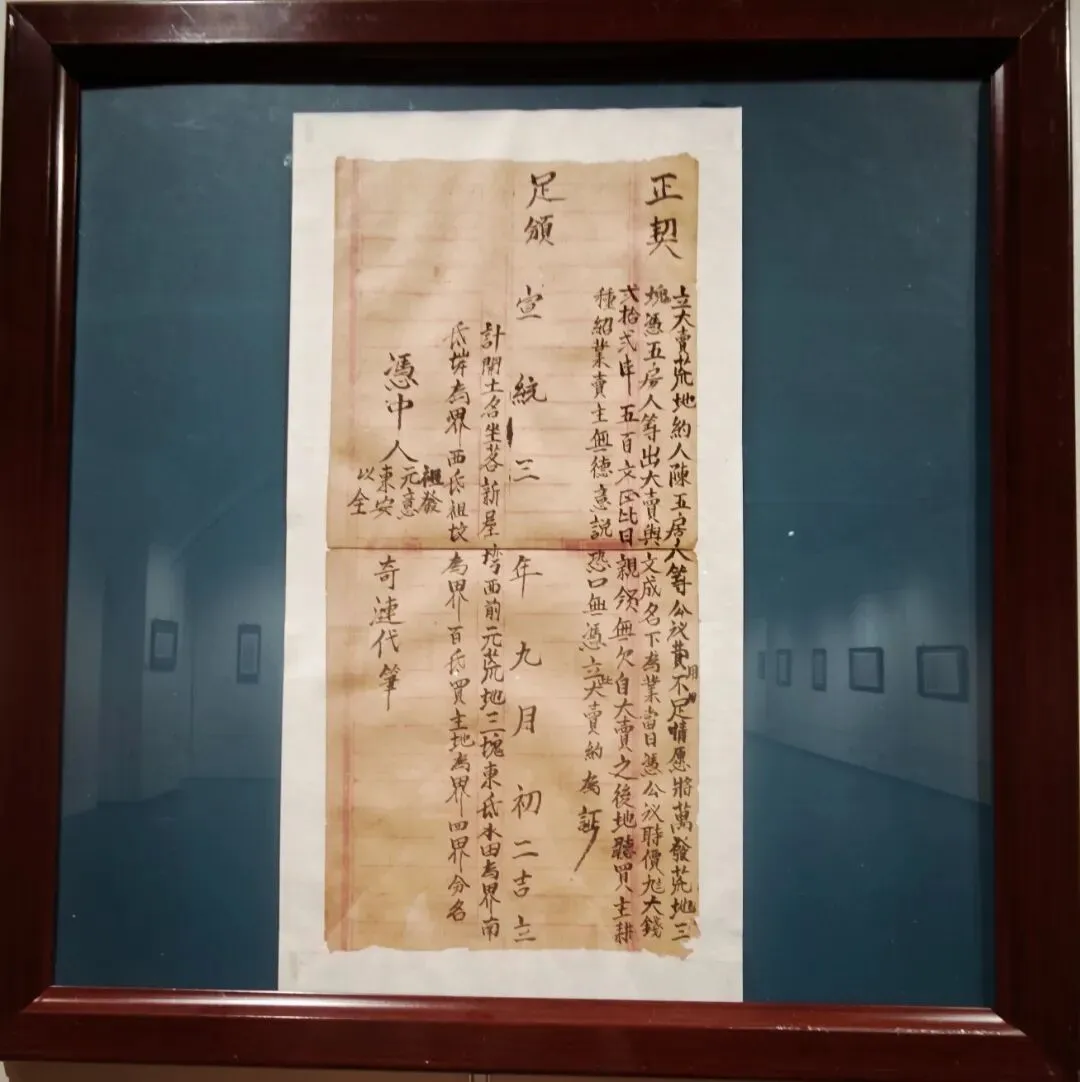 正契
立大賣荒地約人陳五房人等公议費用不足情愿將萬發荒地三
塊憑五房人等出大賣與文成名下為業當日憑公议時價大錢
弍拾弍串五百文正比日親領無欠自大賣之後地聽買主耕
種紹業賣主無德意説恐口無憑立此大賣約為証
足領
宣統三年九月初二吉立
計開土名坐落新屋塆西前元荒地三塊東氐水田為界南
氐塝為界西氐祖坟為界百氐買主地為界四界分名
憑中人
祖發
元意
東安
以全
奇漣代筆